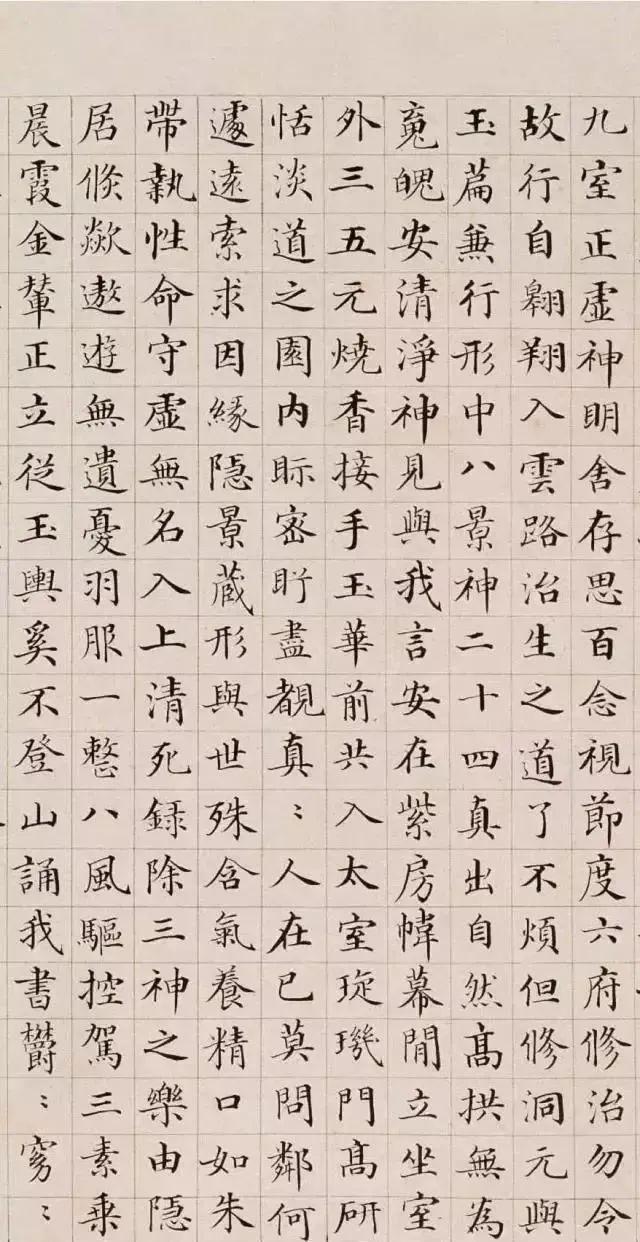 九室正虛神明舍存思百念視節度六府修治勿令
故行自翱翔入雲路治生之道了不煩但修洞元與
玉篇兼行形中八景神二十四真出自然高拱無為
䰟魄安清淨神見與我言安在紫房幃幕閒立坐室
外三五元燒香接手玉華前共入太室琁璣門高研
恬淡道之園內眎密盱盡覩真〻人在已莫問鄰何
遽遠索求因緣隱景藏形與世殊含氣養精口如朱
帶執性命守虛無名入上清死錄除三神之樂由隱
居倏歘遨遊無遺憂羽服一整八風驅控駕三素乘
晨霞金輦正立從玉輿奚不登山誦我書鬱〻窈〻